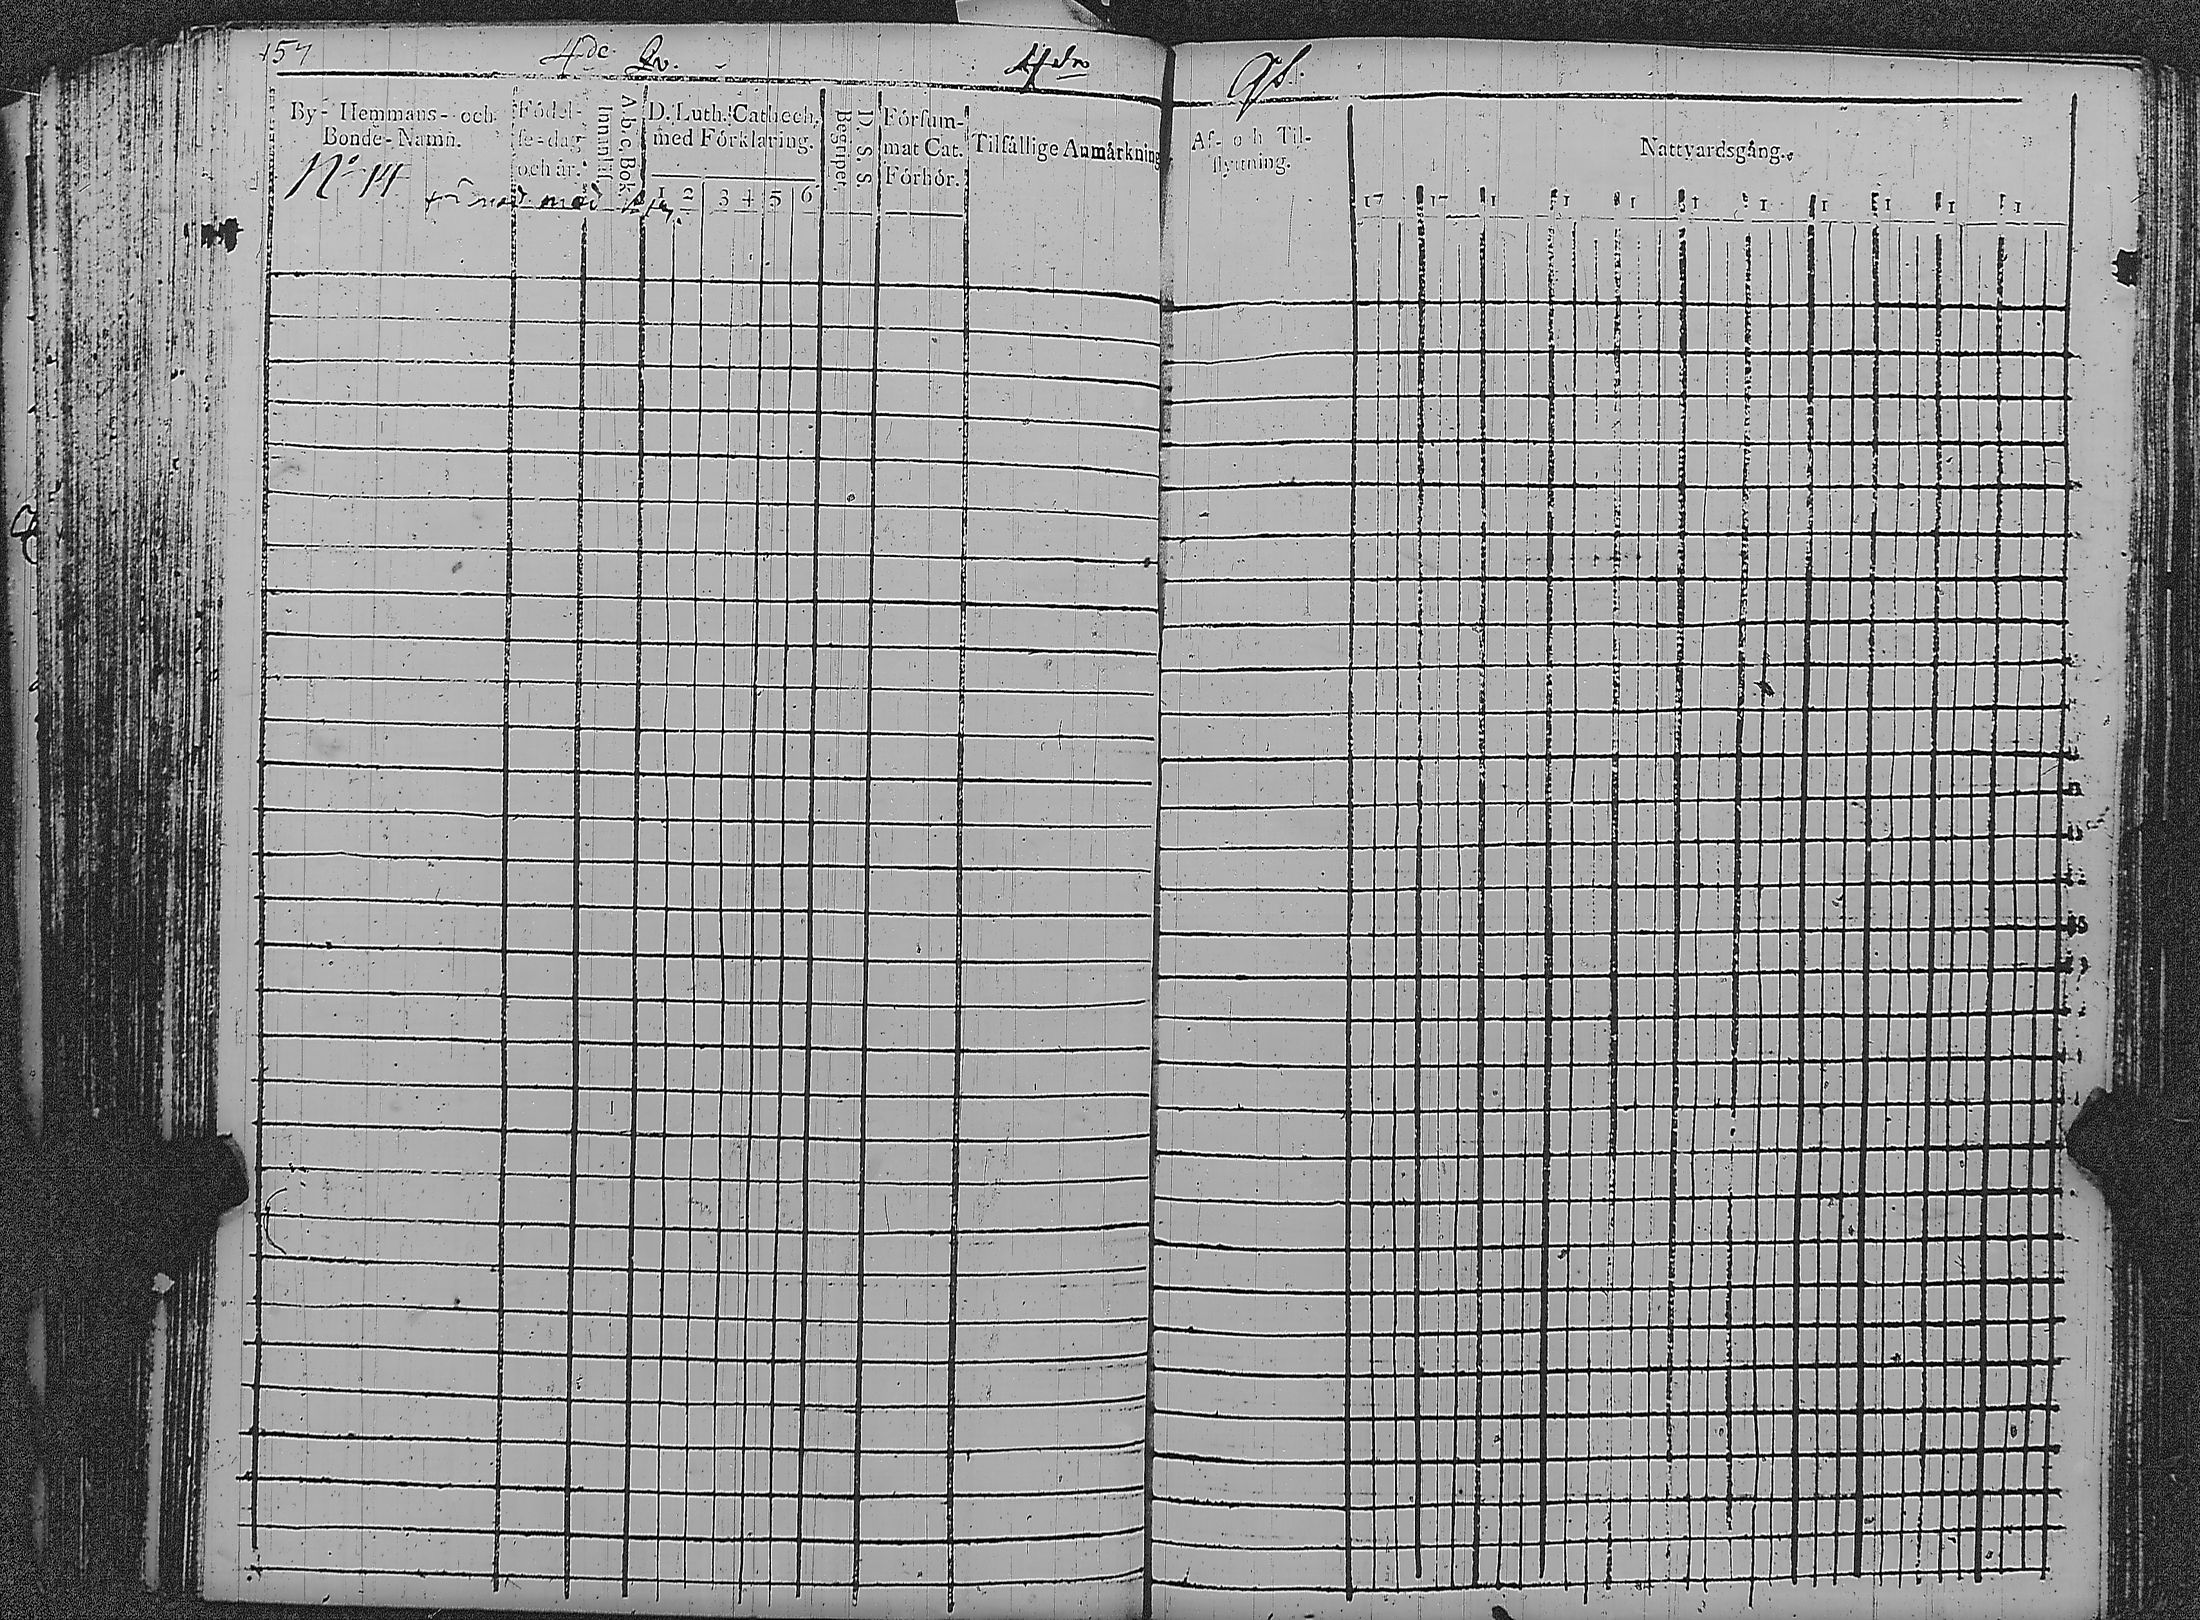 157 4de Qv.
By- Hemmans- och Bonde-Namn.
Födel-se-dag och år.
A.b.c. Bok.
Innanläs.
D. Luth. Cathech. med Förklaring.
1 2 3 4 5 6
D. S. S. S.
Begriper.
Försum-mat Cat. Förhör.
Tilfällige Anmärkning
No 14
Af- och Til-flyttning.
Nattvardsgång.
17 17 1 1 1 1 1 1 1 1 1